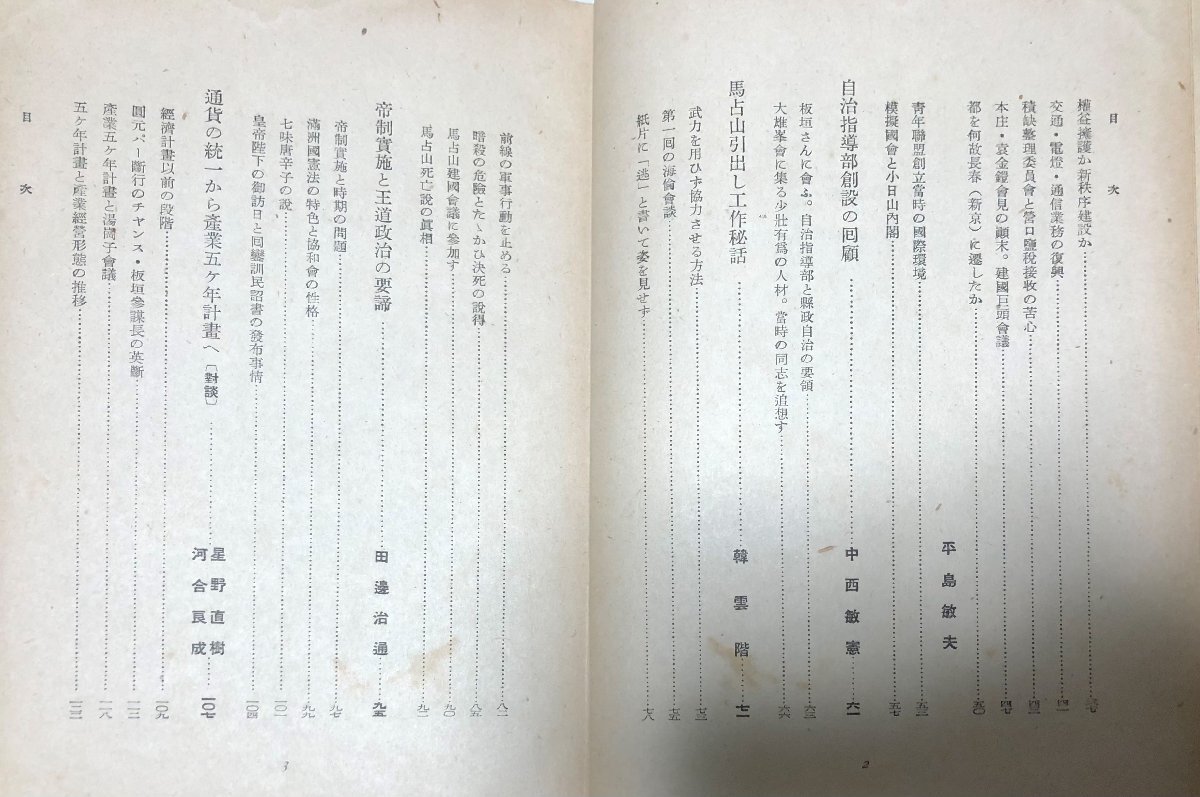 目次
權益擁護か新秩序建設か………三七
交通・電燈・通信業務の復興………四一
積缺整理委員會と營口鹽稅接收の苦心………四三
本庄・袁金鎧會見の顚末。建國巨頭會議………四七
都を何故長春（新京）に遷したか………五〇
平島敏夫
青年聯盟創立當時の國際環境………五三
模擬國會と小日山內閣………五七
自治指導部創設の囘顧………中西敏憲………六一
板垣さんに會ふ。自治指導部と縣政自治の要領………六三
大雄峯會に集る少壯有爲の人材。當時の同志を追想す………六六
馬占山引出し工作秘話………韓雲階………七一
武力を用ひず協力させる方法………七三
第一囘の海倫會談………七五
紙片に「逃」と書いて姿を見せず………七八
2
前線の軍事行動を止める………八二
暗殺の危險とたゝかひ決死の說得………八五
馬占山建國會議に參加す………九〇
馬占山死亡說の眞相………九二
帝制實施と王道政治の要諦………田邊治通………九五
帝制實施と時期の問題………九七
滿洲國憲法の特色と協和會の性格………九九
七味唐辛子の說………一〇一
皇帝陛下の御訪日と囘鑾訓民詔書の發布事情………一〇四
通貨の統一から產業五ケ年計畫へ〔對談〕………星野直樹 河合良成………一〇七
經濟計畫以前の段階………一〇九
圓元パー斷行のチャンス・板垣參謀長の英斷………一一三
產業五ケ年計畫と湯崗子會議………一一八
五ケ年計畫と產業經營形態の推移………一二三
目次
3